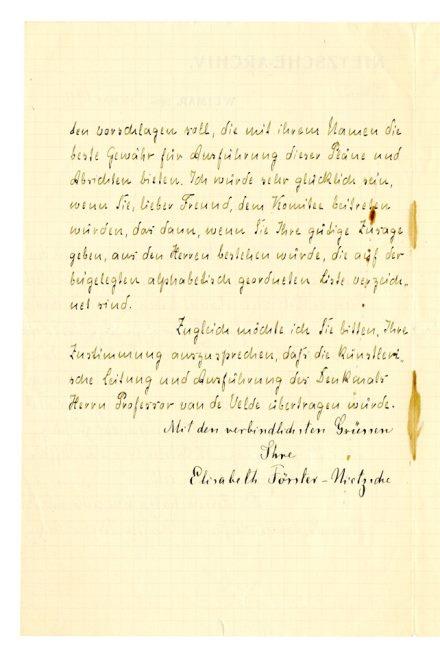 den vorschlagen soll, die mit ihrem Namen die
beste Gewähr für Ausführung dieser Pläne und
Absichten bieten. Ich würde sehr glücklich sein,
wenn Sie, lieber Freund, dem Komitee beitreten
würden, das dann, wenn Sie Ihre gütige Zusage
geben, aus den Herren bestehen würde, die auf der
beigelegten alphabetisch geordneten Liste verzeich-
net sind.
Zugleich möchte ich Sie bitten, Ihre
Zustimmung auszusprechen, daß die künstleri-
sche Leitung und Ausführung des Denkmals
Herrn Professor van de Velde übertragen würde.
Mit den verbindlichsten Grüssen
Ihre
Elisabeth Förster-Nietzsche